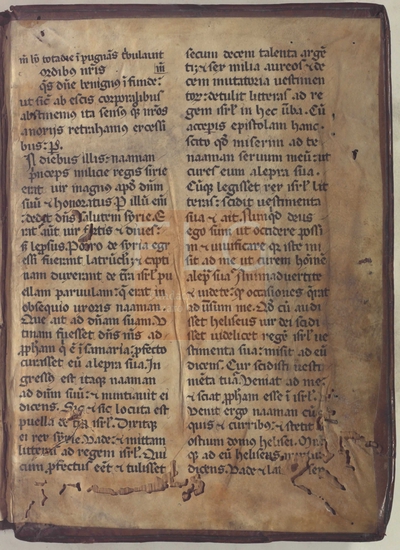 ordibus nr̄is
q̄s dn̄e benignus ifunde:
ut sic̄ ab escis corporalibus
abstinemus ita sensus q̄ nr̄os
a noxiis retrahamus excessi
bus: p̄.
In diebus illis: naaman
princeps milicie regis sirie
erat uir magnus apd̄ dn̄m
suū & honoratus. P illū eni
dedit dn̄s salutem syrie. E
rat aūt uir fortis & diues:
s; leprosus. Porro de syria egr
essi fuerant latrūculi: & capti
uam duxerant de tr̄a isrl̄ pu
ellam paruulam: q̄ erat in
obsequio uxoris naaman.
Que ait ad dn̄am suam. V
tinam fuisset dn̄s m̄s ad
pp̄ham q̄ ē i samaria: p̄fecto
curasset eū a lepra sua. In
gressus est itaq; naaman
ad dn̄m suū: & nuntiauit ei
dicens. Sic & sic locuta est
puella de tr̄a isrl̄. Dixitq;
ei rex syrie. Vade: & mittam
litteras ad regem isrl̄. Qui
cum p̄fectus eēt & tulisset
secum decem talenta argē
ti: & sex milia aureos & de
cem mutatoria uestimen
torum: detulit litteras ad re
gem isrl̄ in hec ūba. Cū
acceperis epistolam hanc:
scito q̄d miserim ad te
naaman seruum meū: ut
cures eum a lepra sua.
Cūq; legisset rex isrl̄ lit
teras: scidit uestimenta
sua & ait. Nunq̄d deus
ego sum ut occidere poss̄
im & uiuificare q̄; iste mi
sit ad me ut curem homi
a lepra sua? animaduertite
& uidete: q̄ occasiones q̄rat
ad ūsum me. Qd̄ cū audi
sset heliseus uir dei scidi
sset uidelicet regē isrl̄ ue
stimenta sua: misit ad eū
dicens. Cur scidisti uesti
mēta tua? Veniat ad me:
& sciat pp̄ham esse i isrl̄.
Venit ergo naaman cū
equis & curribus: & stetit
ostium domus helisei.
q; ad eū heliseus
dicens. Vade & la